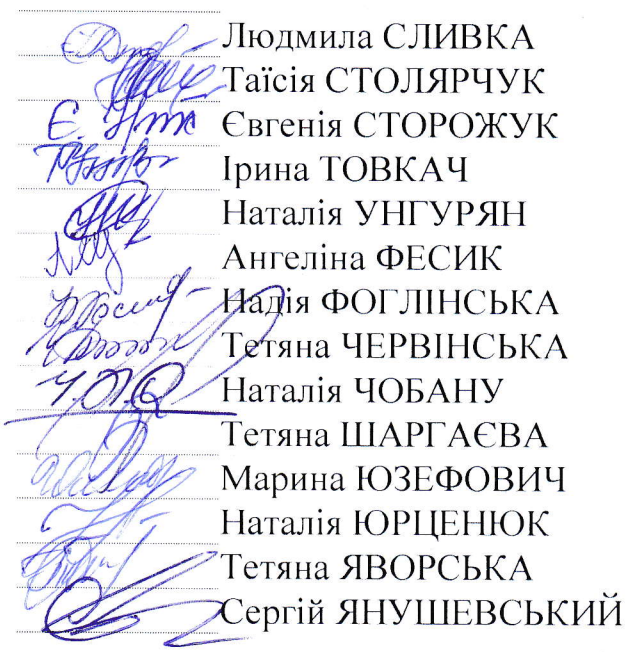 Людмила СЛИВКА
Таїсія СТОЛЯРЧУК
Євгенія СТОРОЖУК
Ірина ТОВКАЧ
Наталія УНГУРЯН
Ангеліна ФЕСИК
Надія ФОГЛІНСЬКА
Тетяна ЧЕРВІНСЬКА
Наталія ЧОБАНУ
Тетяна ШАРГАЄВА
Марина ЮЗЕФОВИЧ
Наталія ЮРЦЕНЮК
Тетяна ЯВОРСЬКА
Сергій ЯНУШЕВСЬКИЙ